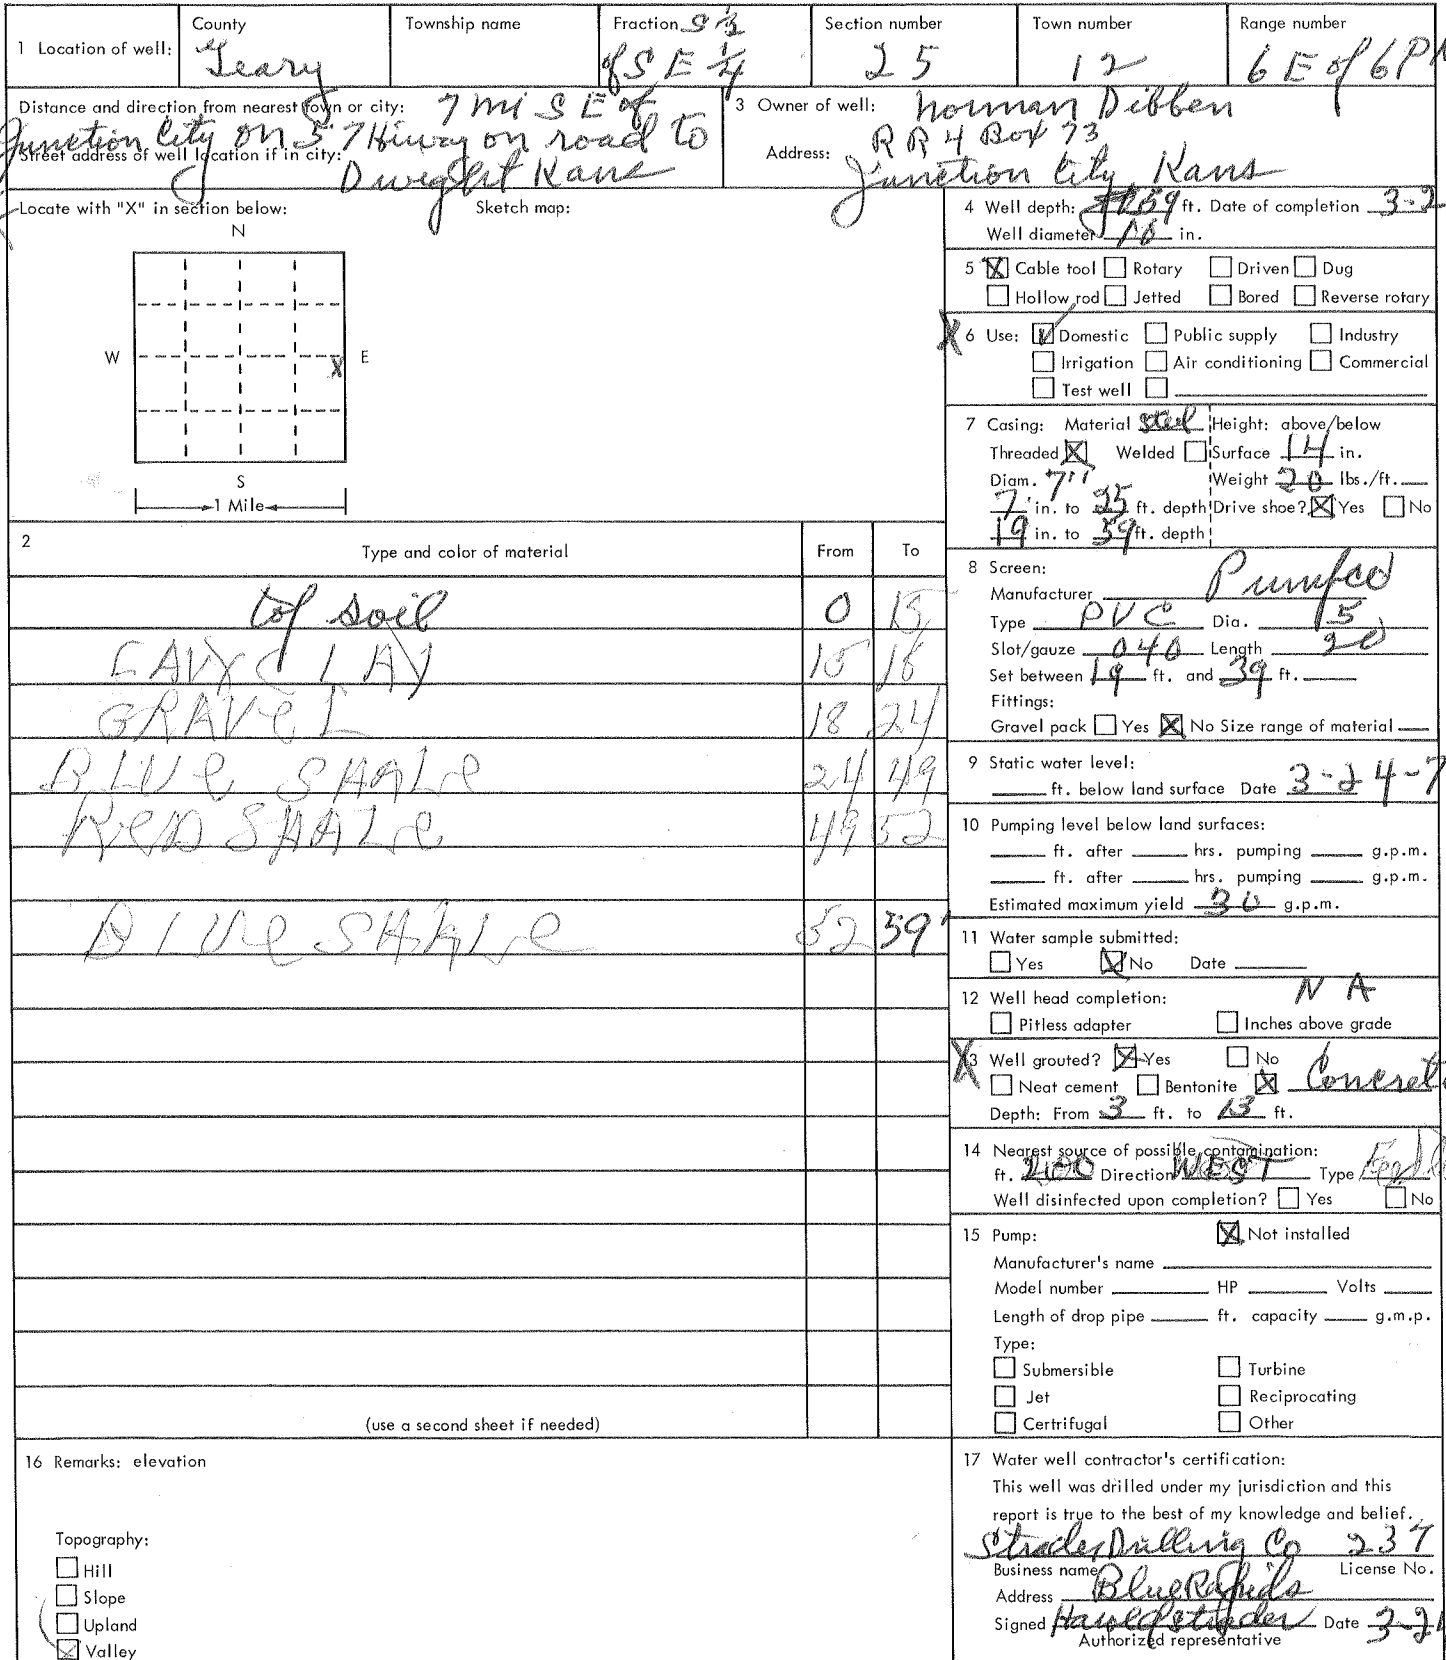 1 Location of well:
County
Geary
Township name
Fraction S ½
of S E ¼
Section number
25
Town number
12
Range number
6 E of 6 PM
Distance and direction from nearest town or city: 7 mi S E of
Junction City on 57 Hiway on road to
Street address of well location if in city:
Dwight Kans
3 Owner of well: Norman Dibben
Address: R R 4 Box 73
Junction City Kans
Locate with "X" in section below:
Sketch map:
N
W
X
E
S
1 Mile
4 Well depth: 59 ft. Date of completion 3-2
Well diameter 10 in.
5 X Cable tool Rotary Driven Dug
Hollow rod Jetted Bored Reverse rotary
X 6 Use: Domestic Public supply Industry
Irrigation Air conditioning Commercial
Test well
7 Casing: Material Steel Height: above/below
Threaded X Welded Surface 14 in.
Diam. 7" Weight 20 lbs./ft.
7 in. to 25 ft. depth Drive shoe? X Yes No
19 in. to 59 ft. depth
2
Type and color of material From To
top soil 0 15
GRAVEL 18 24
BLUe SHALe 24 49
ReD SHALe 49 52
BlUe SHALe 52 59'
(use a second sheet if needed)
8 Screen:
Manufacturer
Type PVC Dia. 5
Slot/gauze 040 Length 20
Set between 19 ft. and 39 ft.
Fittings:
Gravel pack Yes X No Size range of material
9 Static water level:
ft. below land surface Date 3-24-7
10 Pumping level below land surfaces:
ft. after hrs. pumping g.p.m.
ft. after hrs. pumping g.p.m.
Estimated maximum yield 30 g.p.m.
11 Water sample submitted:
Yes X No Date
12 Well head completion: N A
Pitless adapter Inches above grade
X 3 Well grouted? X Yes No
Neat cement Bentonite X Concret
Depth: From 3 ft. to 13 ft.
14 Nearest source of possible contamination:
ft. Direction WEST Type
Well disinfected upon completion? Yes No
15 Pump: X Not installed
Manufacturer's name
Model number HP Volts
Length of drop pipe ft. capacity g.m.p.
Type:
Submersible Turbine
Jet Reciprocating
Certrifugal Other
16 Remarks: elevation
Topography:
Hill
Slope
Upland
X Valley
17 Water well contractor's certification:
This well was drilled under my jurisdiction and this
report is true to the best of my knowledge and belief.
Strader Drilling Co 237
Business name License No.
Address Blue Rapids
Signed Harold Strader Date 3-2
Authorized representative